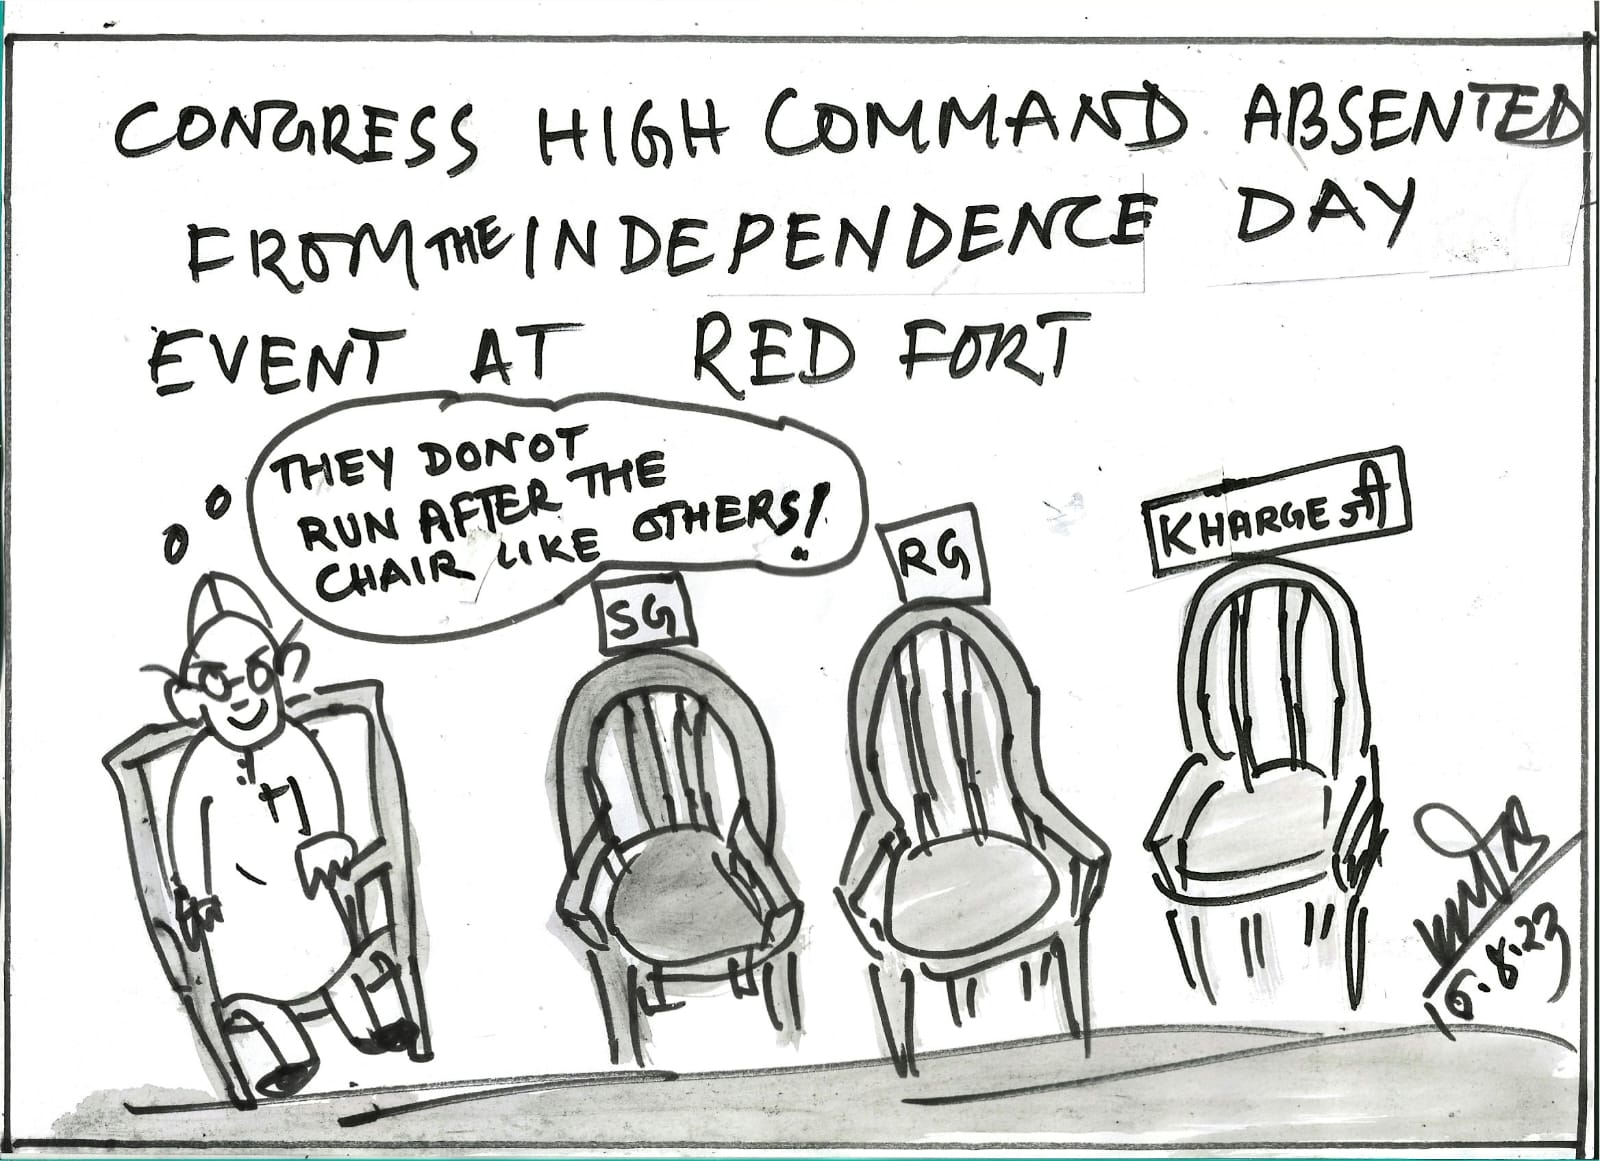 CONGRESS HIGH COMMAND ABSENTED
FROM THE INDEPENDENCE DAY
EVENT AT RED FORT
THEY DONOT
RUN AFTER THE
CHAIR LIKE OTHERS!
SG
RG
KHARGE जी
16.8.23